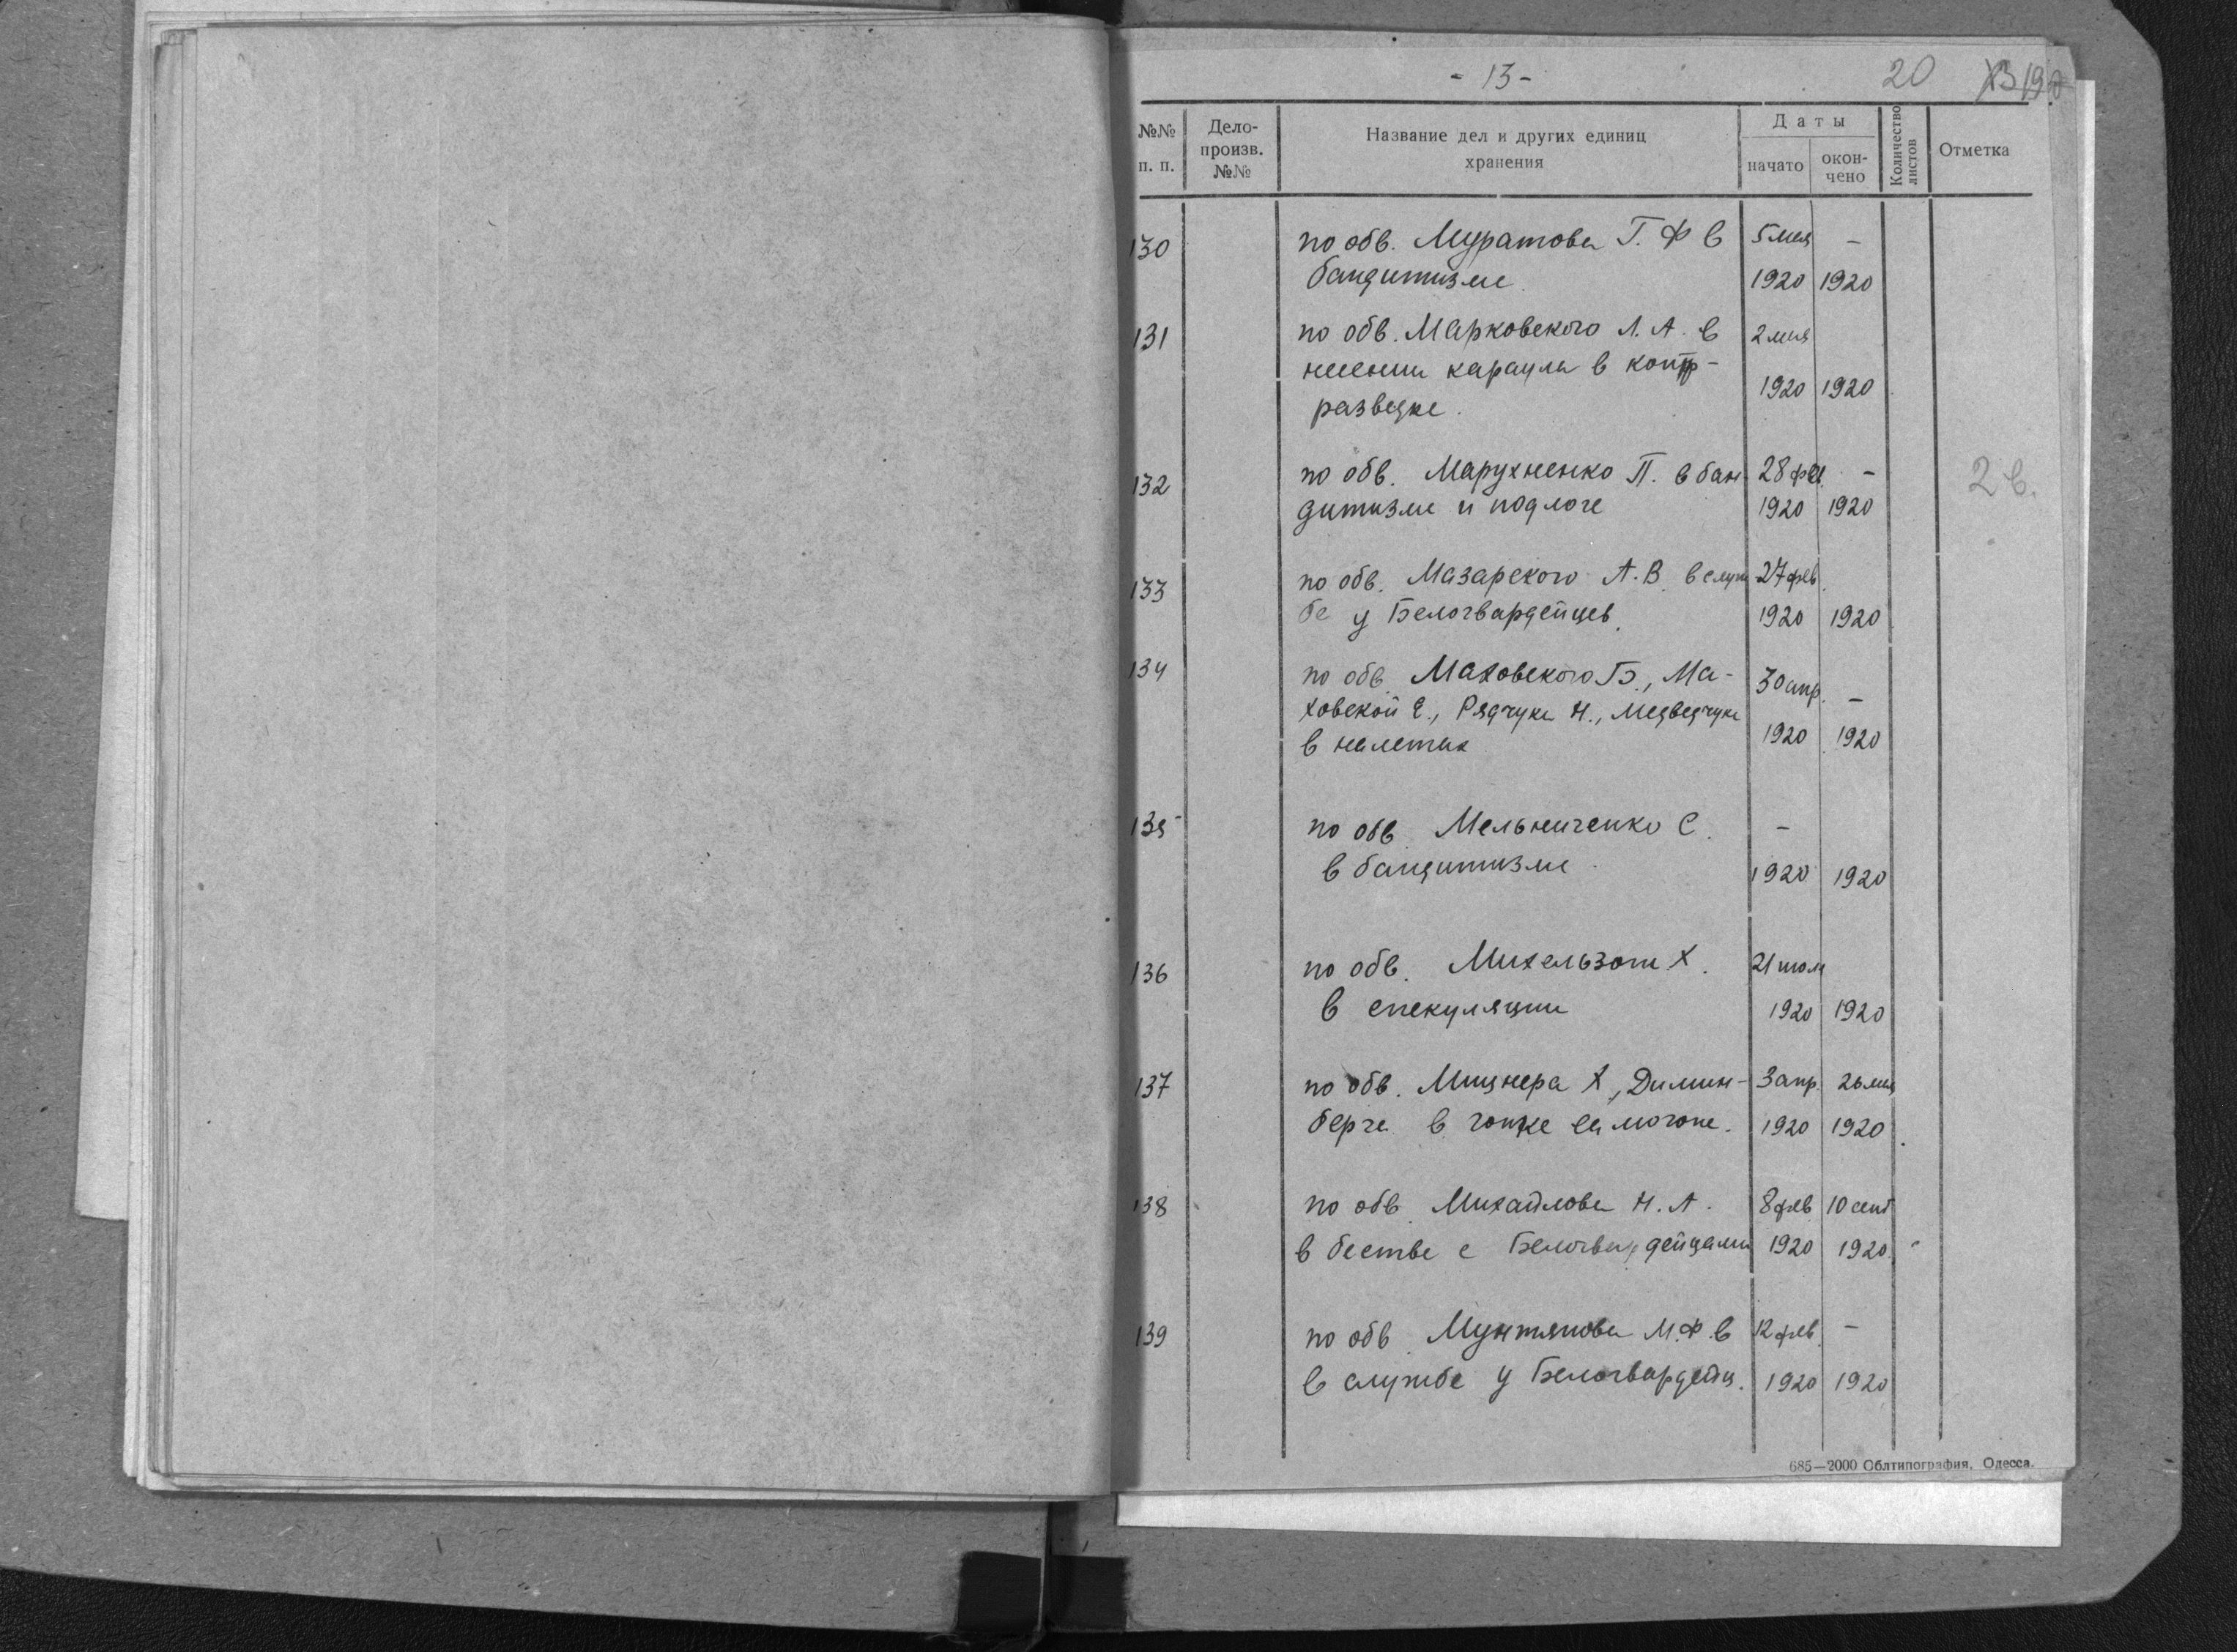 - 13 -
20
№№ п. п.
Дело-произв. №№
Название дел и других единиц хранения
Даты
начато
окончено
Количество листов
Отметка
130 по обв. Муратова Г. Ф в 5 мая -
бандитизме 1920 1920
131 по обв. Марковского Л. А. в 2 мая
несении караула в контр-
разведке. 1920 1920
132 по обв. Марухненко П. в бан 28 фев. -
дитизме и подлоге 1920 1920
2 в.
133 по обв. Мазарского А. В. в служ 27 фев.
бе у Белогвардейцев. 1920 1920
134 по обв. Маховского Б., Ма- 30 апр. -
ховской Е., Рядчука Н., Медведчука
в налетах 1920 1920
135 по обв. Мельниченко С. -
в бандитизме 1920 1920
136 по обв. Михельзон Х. 21 июля
в спекуляции 1920 1920
137 по обв. Мицнера Х., Димин- 3 апр. 26 мая
берга в гонке самогона. 1920 1920
138 по обв. Михайлова Н. А. 8 фев 10 сент
в бестве с Белогвардейцами 1920 1920.
139 по обв. Мунтянова М. Ф. в 12 фев. -
в службе у Белогвардейц. 1920 1920
685—2000 Облтипография, Одесса.